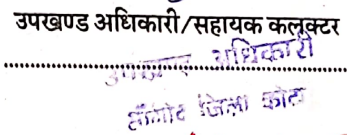 उपखण्ड अधिकारी/सहायक कलक्टर
उपखण्ड अधिकारी
सांगोद जिला कोटा